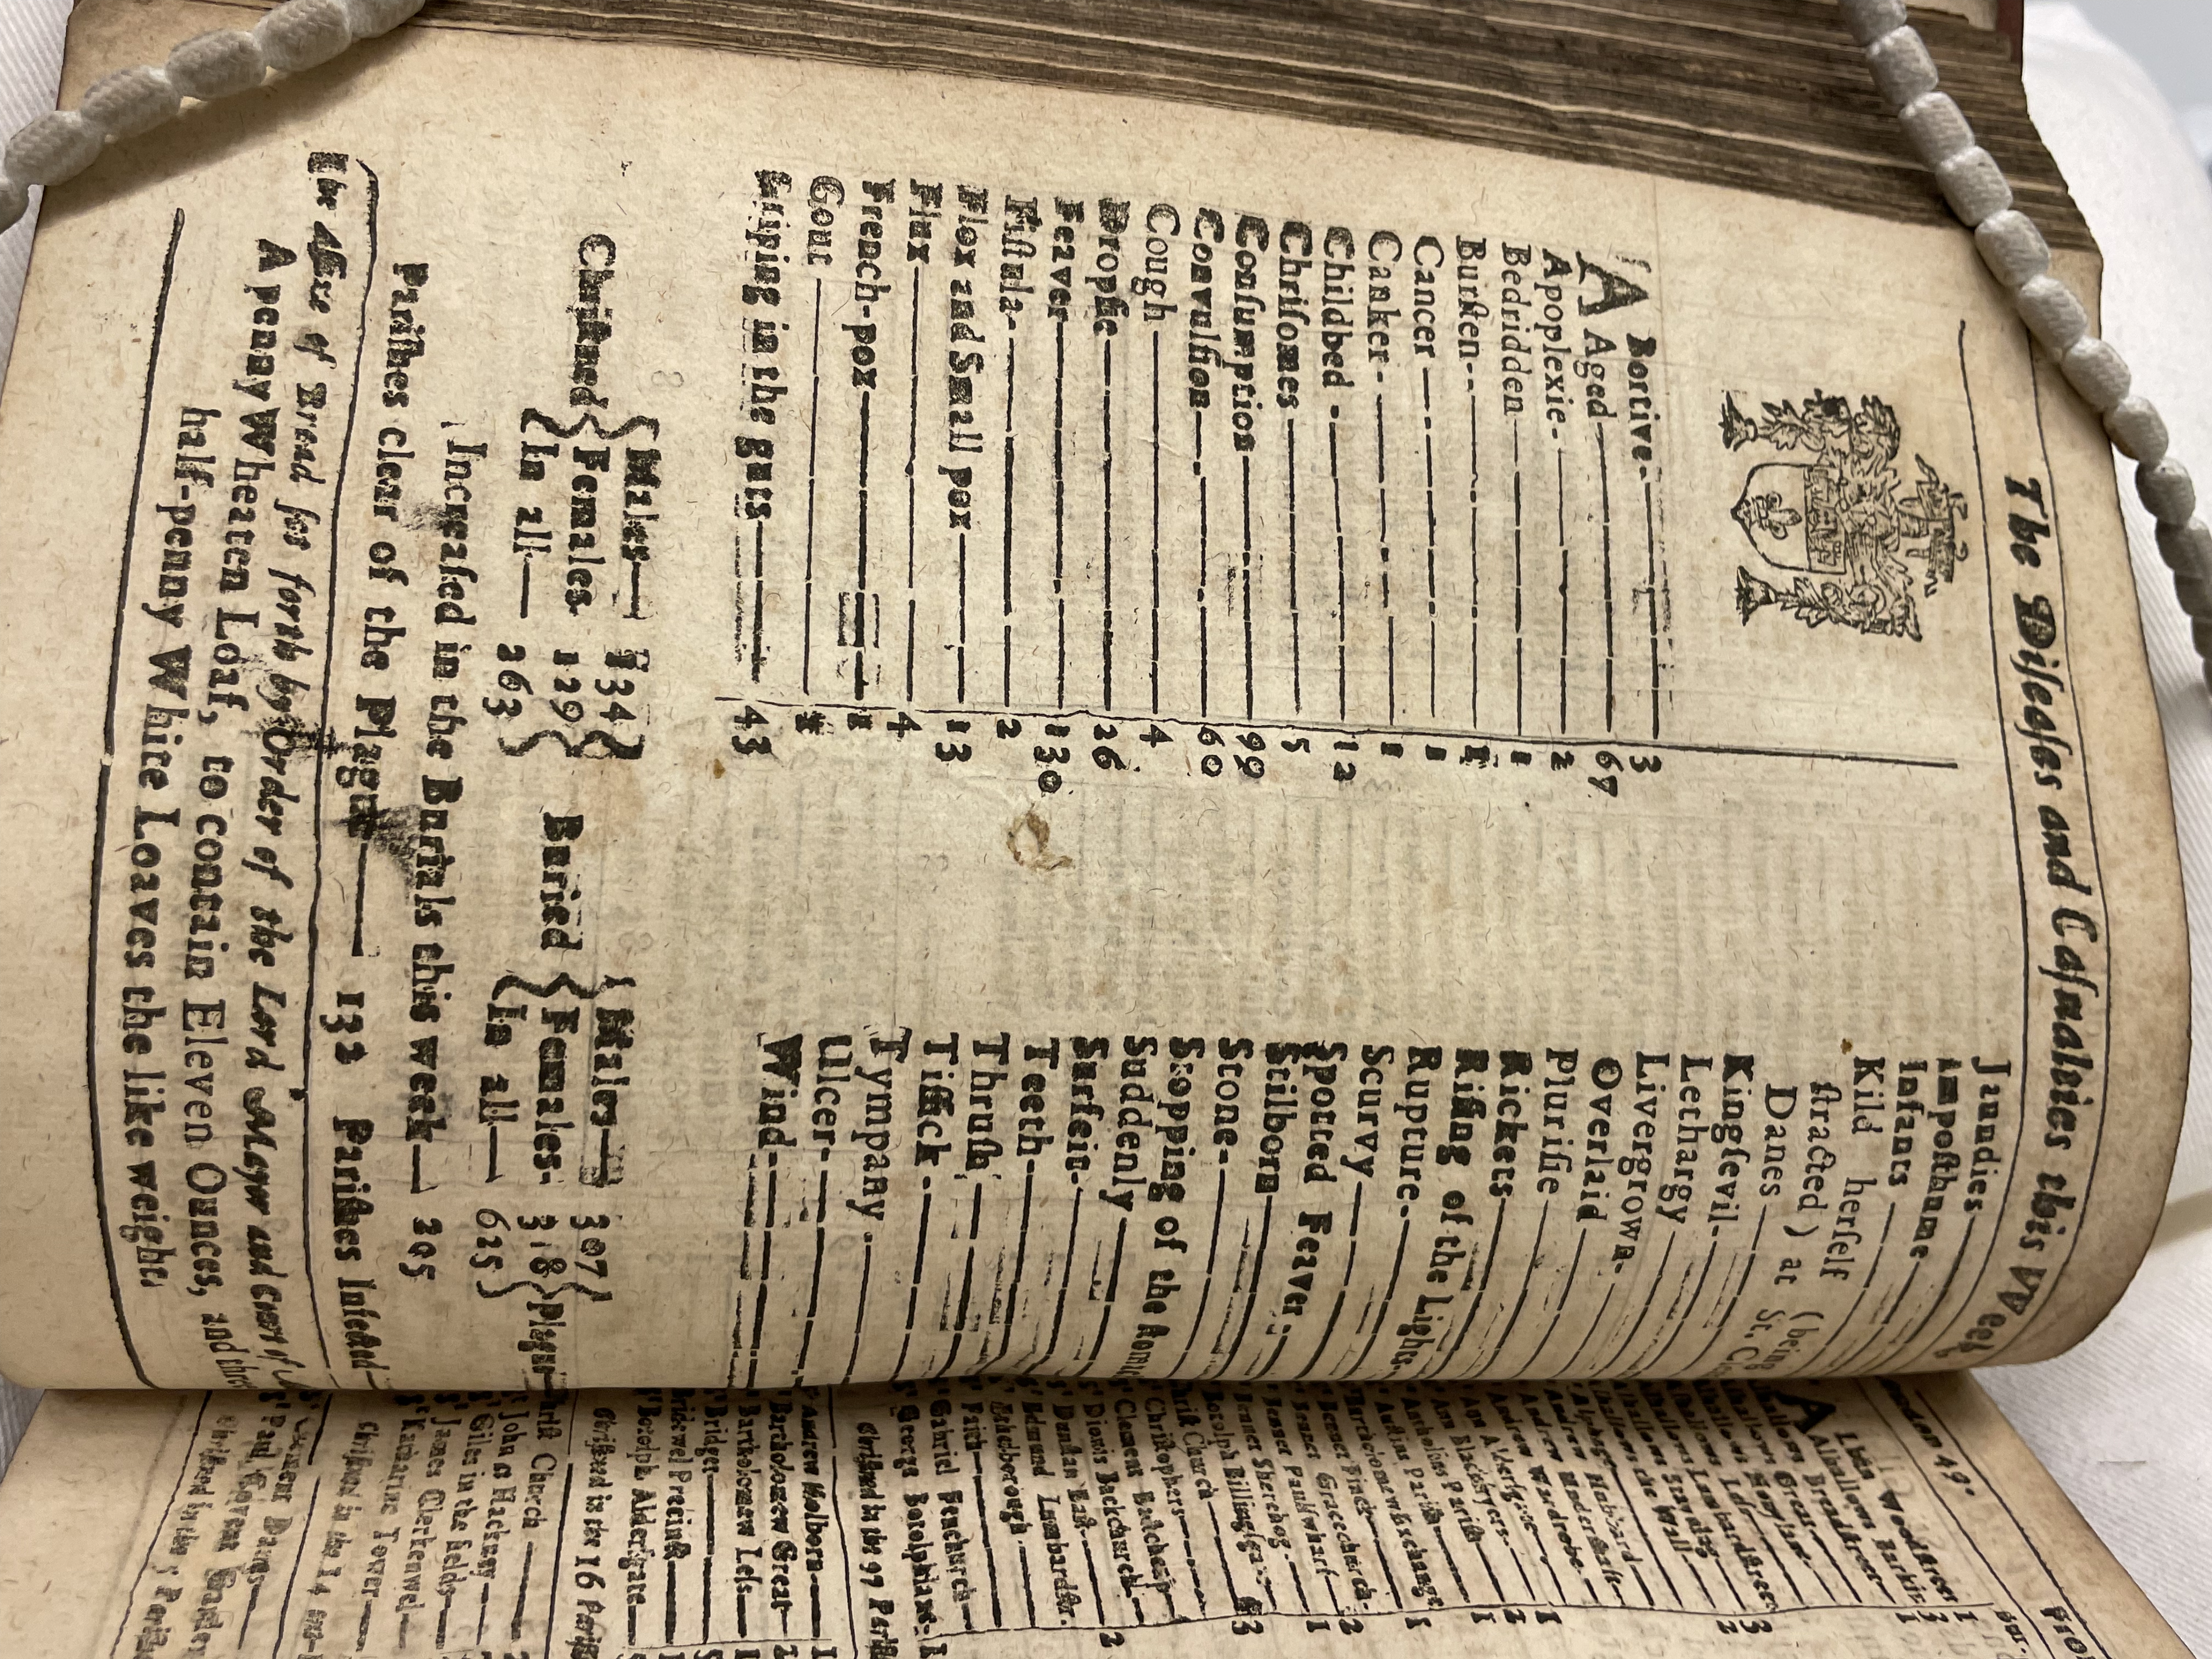 The Diseases and Casualties this Week
Abortive 3
Aged 67
Apoplexie 2
Bedridden 1
Bursten 1
Cancer 1
Canker 1
Childbed 12
Chrisomes 5
Consumption 99
Convulsion 60
Cough 4
Dropsie 26
Feaver 130
Fistula 2
Flox and Small pox 13
Flux 4
French-pox 1
Gout
Griping in the guts 43
Jaundies
Imposthume
Infants
Kild herself (being
stracted) at St.
Danes
Kingsevil
Lethargy
Livergrown
Overlaid
Plurisie
Rickets
Rising of the Lights
Rupture
Scurvy
Spotted Feaver
Stilborn
Stone
Stopping of the
Suddenly
Surfeit
Teeth
Thrush
Tissick
Tympany
Ulcer
Wind
Christned { Males 134
Females 129
In all 263 }
Buried { Males 307
Females 318
In all 625 } Plague
Increased in the Burials this week 205
Parishes clear of the Plague 132 Parishes Infected
The Assize of Bread set forth by Order of the Lord Mayor and Court of
A penny Wheaten Loaf, to contain Eleven Ounces, and three
half-penny White Loaves the like weight.
London 49
Alban Woodstreet 1
Alhallows Barkin 3
Alhallows Breadstreet 1
Alhallows Great
Alhallows Lombardstreet 3
Alhallows Staining 2
Alhallows the Wall
Alphage
Andrew Hubbard
Andrew Undershaft
Andrew Wardrobe 1
Ann Aldersgate 2
Ann Blackfryers 1
Antholins Parish
Austins Parish 1
Bartholomew Exchange
Bennet Finch
Bennet Gracechurch 2
Bennet Paulswharf 1
Bennet Sherehog
Botolph Billingsgate 3
Christ Church
Christophers
Clement Eastcheap
Dionis Backchurch 2
Dunstan East
Edmund Lumbardstr.
Ethelborough
Faith
Gabriel Fenchurch
George Botolphlane 1
Christned in the 97 Parishes
Andrew Holborn 1
Bartholomew Great 2
Bartholomew Less 1
Bridget
Bridewel Precinct
Botolph Aldersgate
Christned in the 16 Parishes
Christ Church
John at Hackney
Giles in the fields
James Clerkenwel
Katharine Tower
Christned in the 14
Clement Danes
Paul Covent Garden
Christned in the 5 Parishes